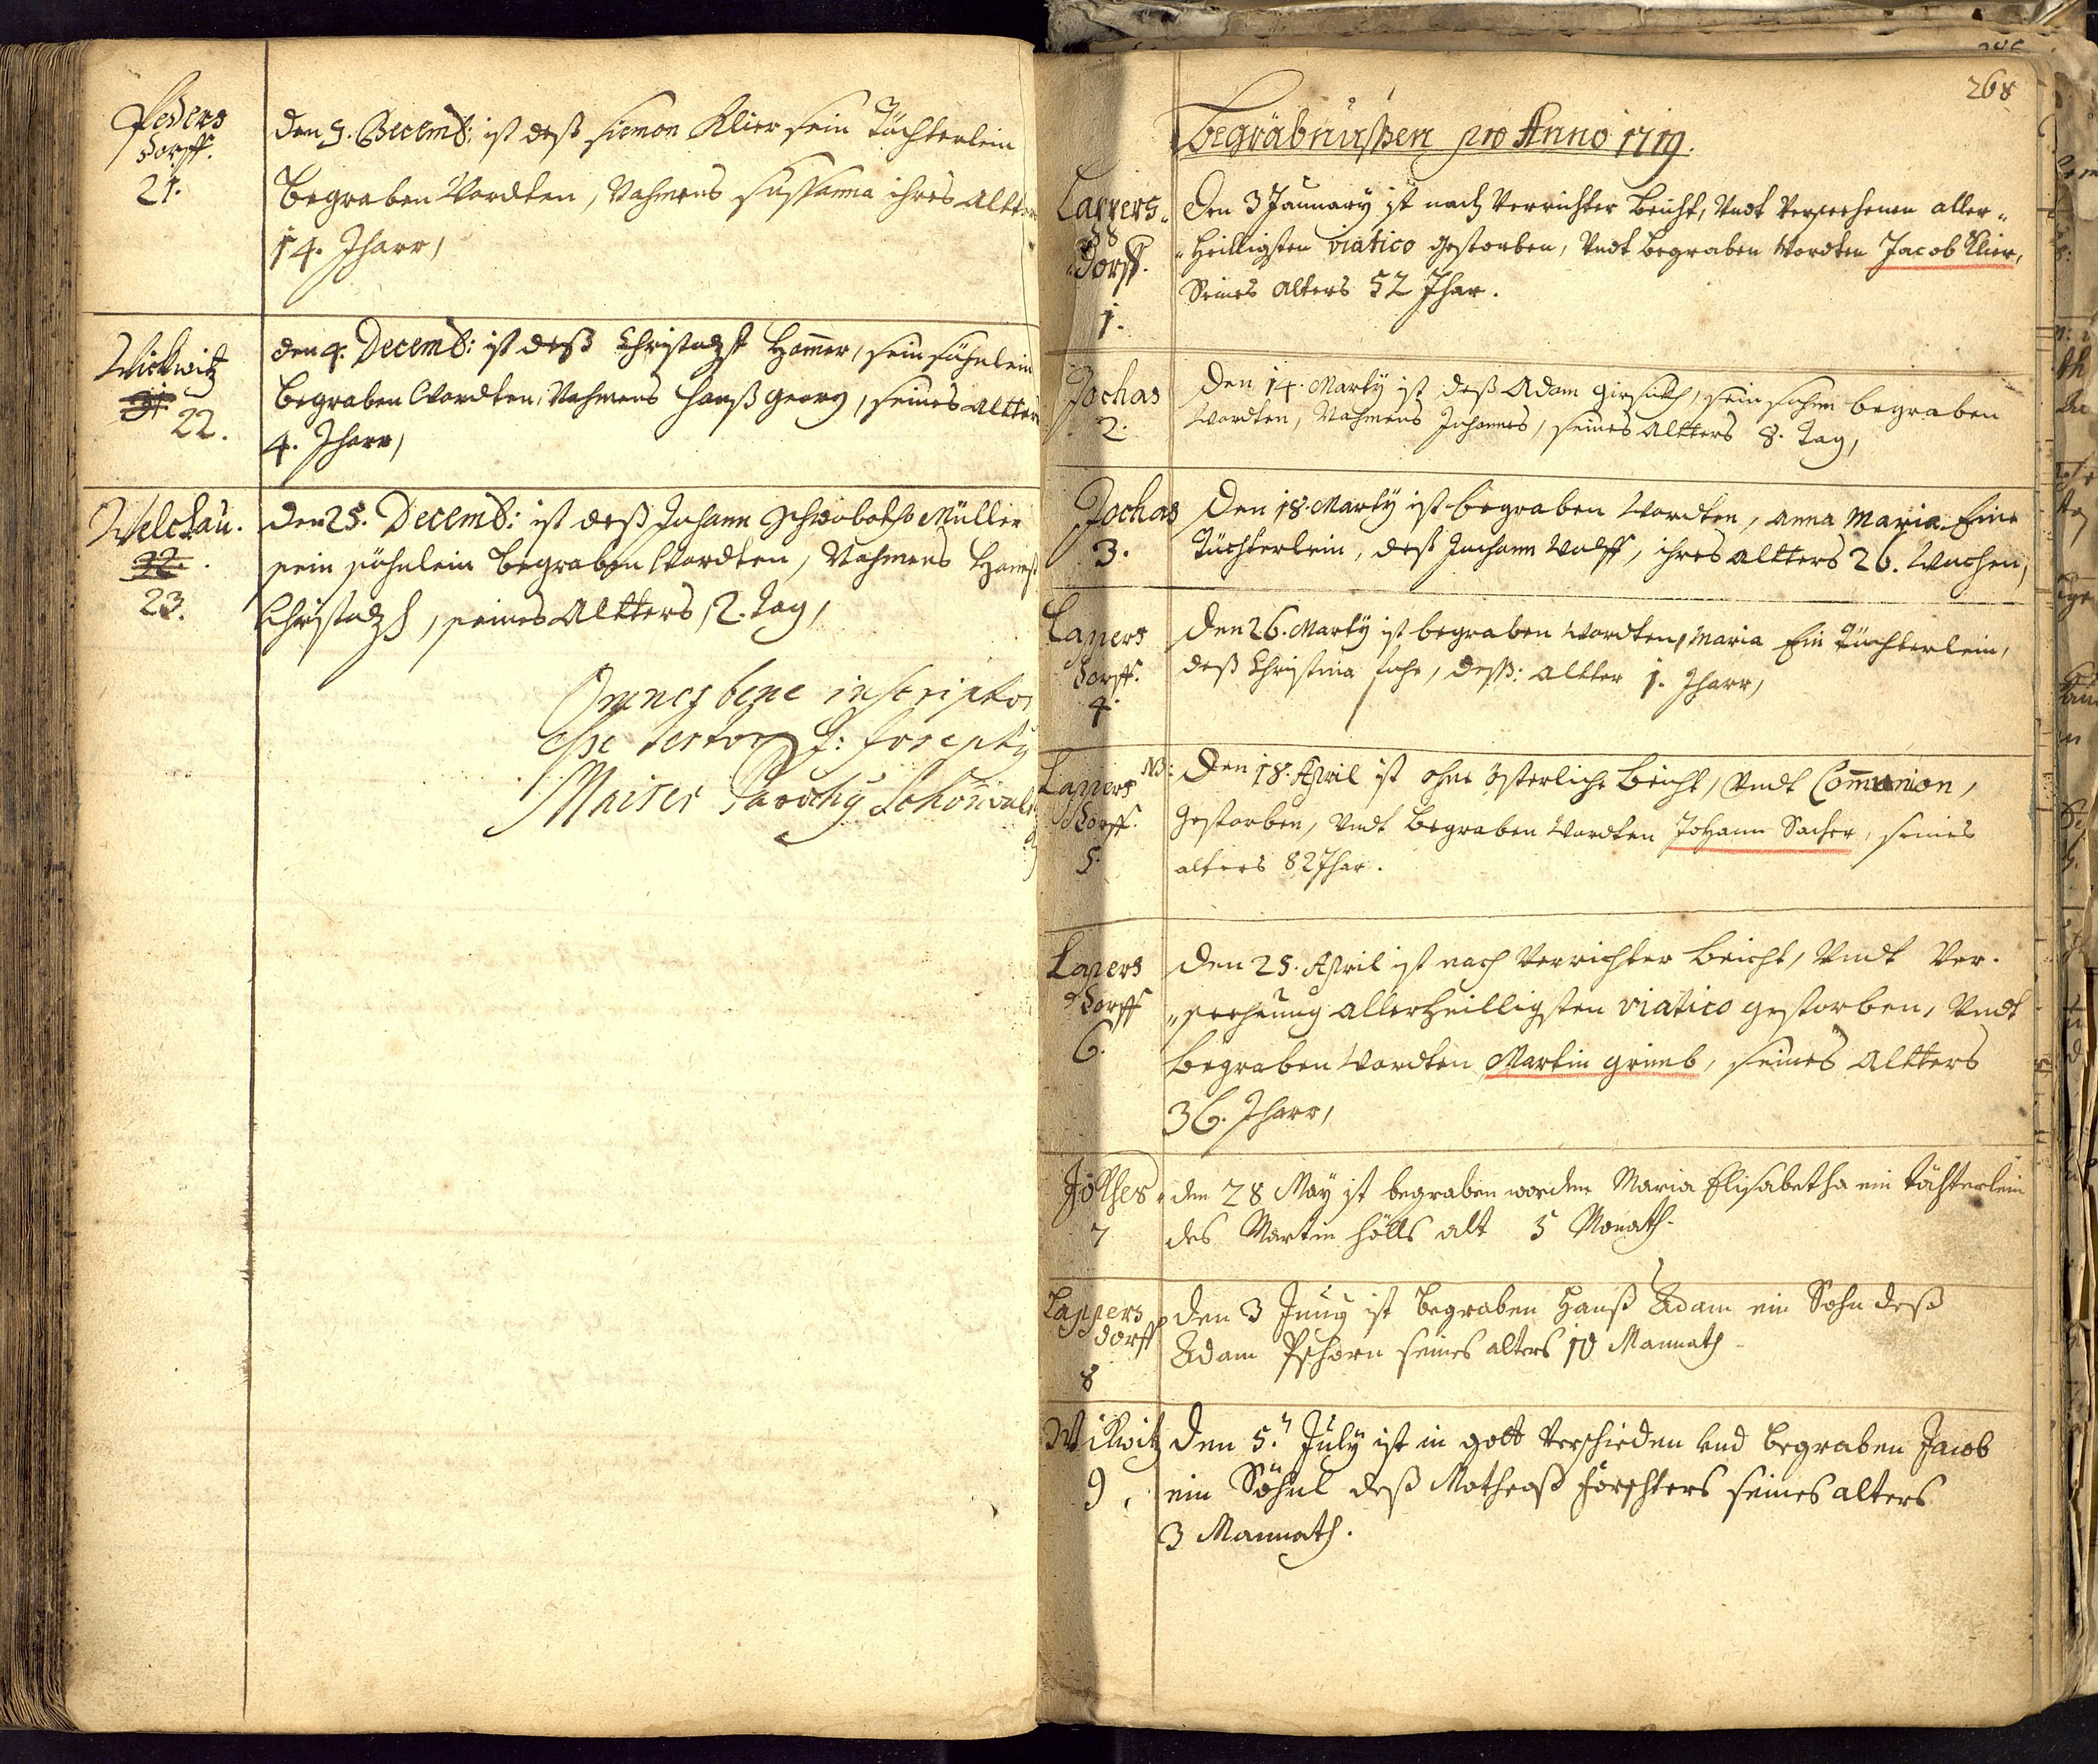 Peders
dorff.
21.
den 9. Decemb: ist deß Siemon Klier sein Töchterlein
begraben Wordten, Nahmens Sussanna ihres Altters
14. Jharr,
Wickwitz
22.
den 4. Decemb: ist deß Christoph Hamer, sein söhnlein
begraben Wordten, Nahmens Hanß Georg, seines Altters
4. Jharr,
Welchau.
23.
den 25. Decemb: ist deß Johann Müller
sein söhnlein begraben Wordten, Nahmens Hanß
Christoph, seines Altters, 2. Tag,
Omnes bene inscriptos
esse testor P: Josephus
Maiser Parochus Schönwald
268
Begräbnüßen pro Anno 1719.
Lappers-
dorff.
1.
Den 3 Jannuary ist nach Verrichter Beicht, Vndt Versechenen aller-
heilligsten viatico gestorben, Vndt begraben Wordten Jacob Klier,
Seines alters 52 Jhar.
Jochas
2.
Den 14. Marty ist deß Adam sein sohn begraben
Wordten, Nahmens Johannes, seines Altters 8. Tag,
Jochas
3.
Den 18. Marty ist begraben Wordten, Anna Maria Eine
Töchterlein, deß Johann Wolff, ihres Altters 26. Wochen,
Lapers
dorff.
4.
Den 26. Marty ist begraben Wordten, Maria Ein Töchterlein,
deß Christina deß: Altter 1. Jharr,
Lapers
dorff.
5.
NB: Den 18. April ist ohne österliche Beicht, Vndt Com̄union,
gestorben, Vndt begraben Wordten Johann Sacher, seines
alters 82 Jhar.
Lapers
dorff
6.
Den 25. April ist nach Verrichter Beicht, Vndt Ver-
sechenung allerheilligsten viatico gestorben, Vndt
begraben Wordten Martin Grimb, seines Altters
36. Jharr,
Jokses
7
den 28 May ist begraben worden Maria Elisabetha ein töchterlein
des Martin Hölls alt 5 Monath.
Lappers
dorff
8
Den 3 Juny ist begraben Hanß Adam ein Sohn deß
Adam Pschorn seines alters 10 Mannath
Wikwitz
9.
Den 5. July ist in gott Verschieden vnd begraben Jacob
ein Söhnl deß Matheaß Forschters seines alters
3 Mannath.